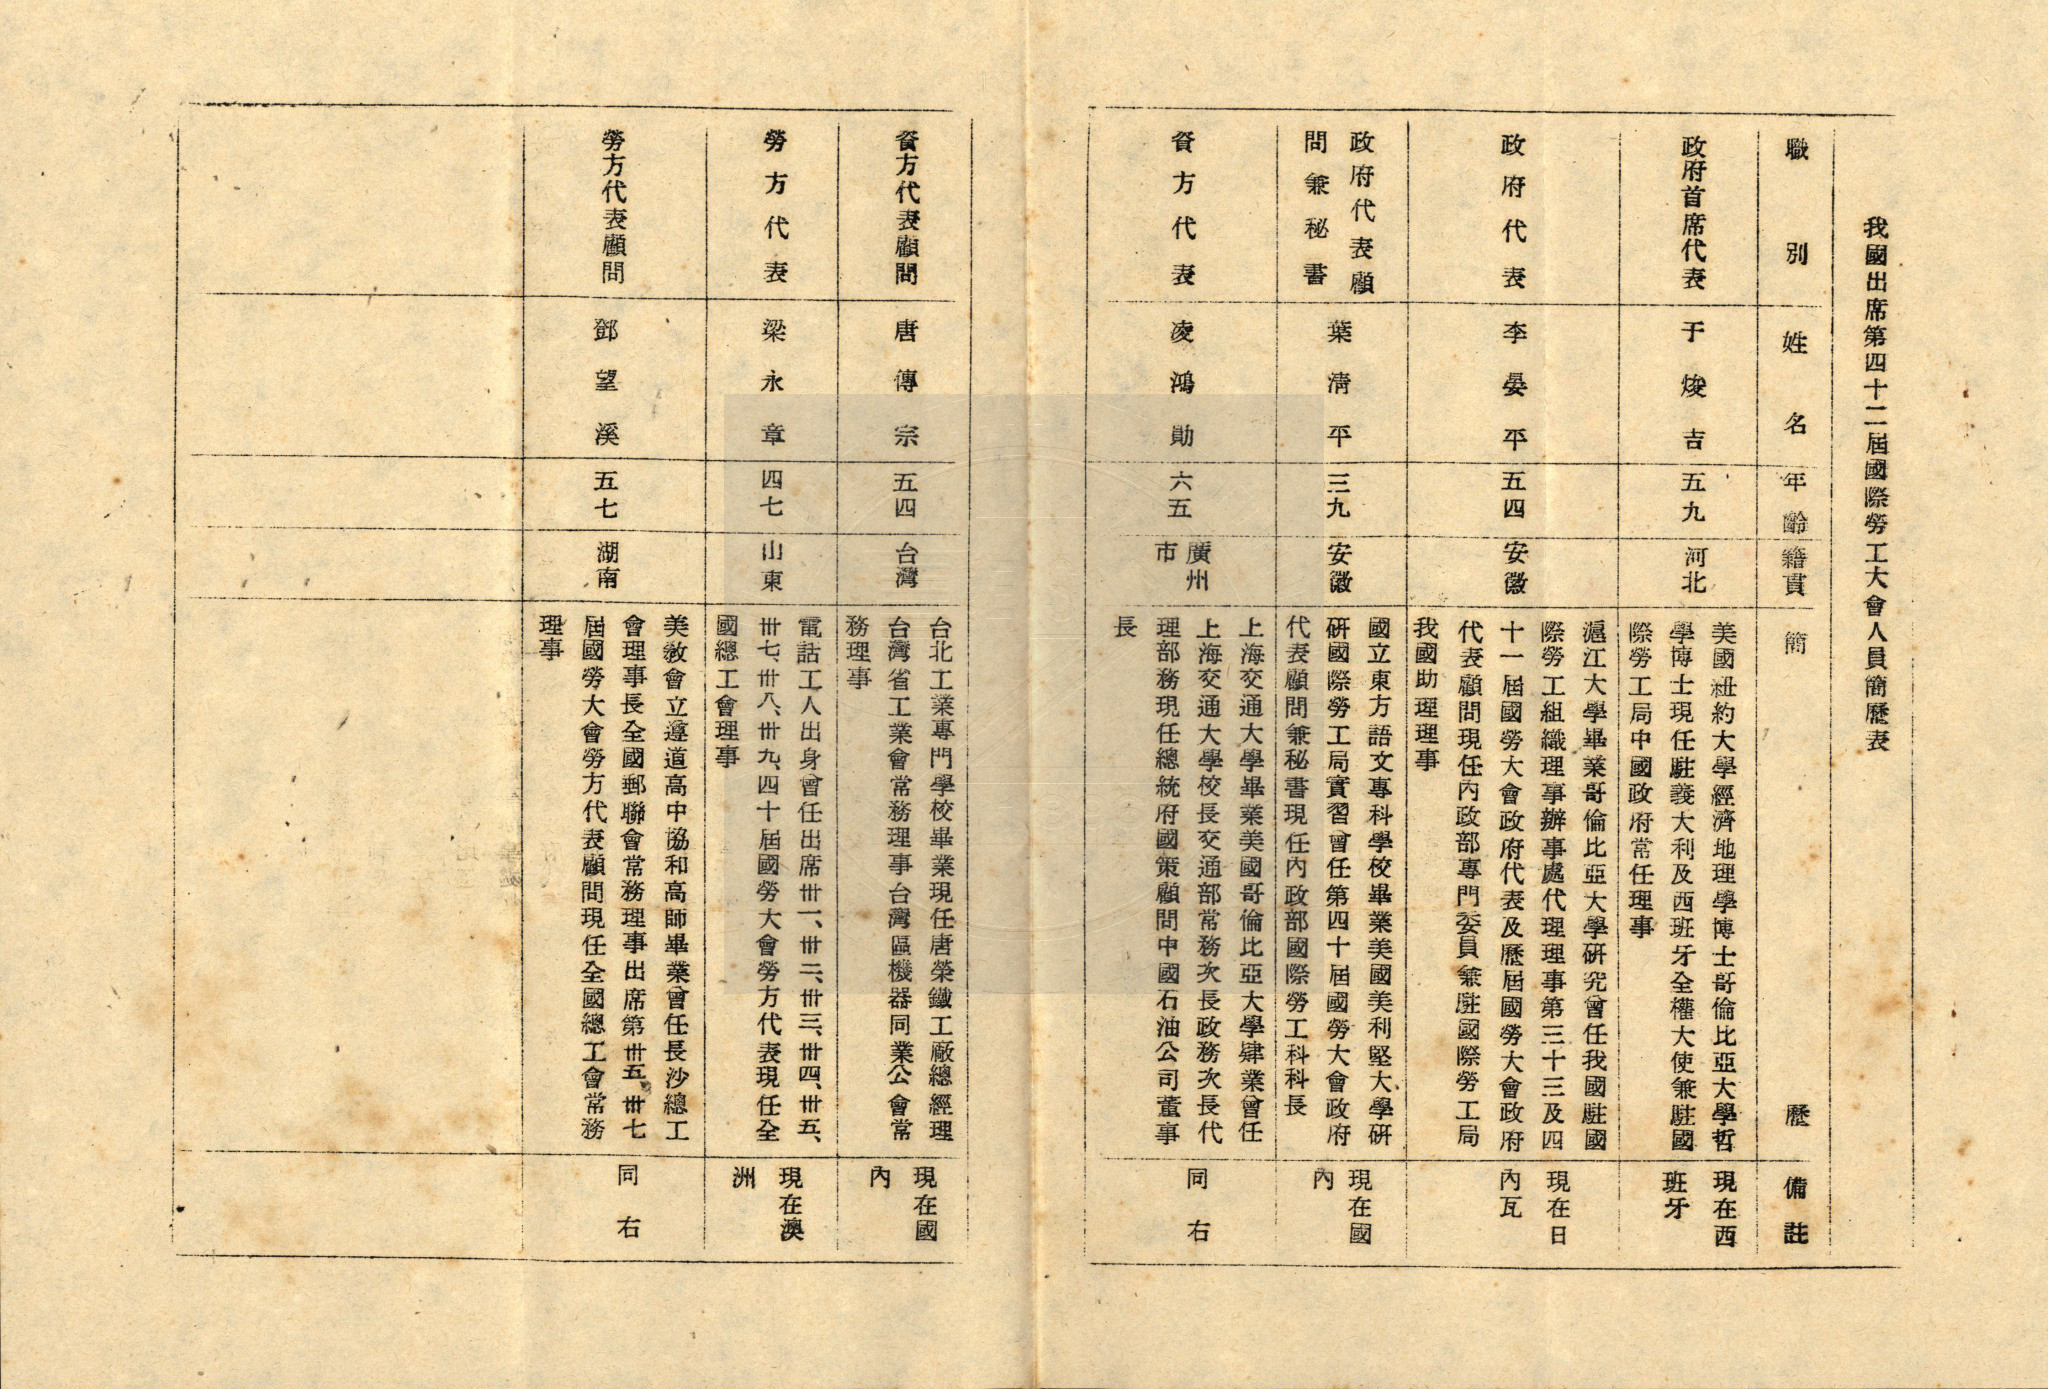 我國出席第四十二屆國際勞工大會人員簡歷表
職別
姓名
年齡
籍貫
簡歷
備註
政府首席代表
于焌吉
五九
河北
美國紐約大學經濟地理學博士哥倫比亞大學哲
學博士現任駐義大利及西班牙全權大使兼駐國
際勞工局中國政府常任理事
現在西
班牙
政府代表
李晏平
五四
安徽
滬江大學畢業哥倫比亞大學研究曾任我國駐國
際勞工組織理事辦事處代理理事第三十三及四
十一屆國勞大會政府代表及歷屆國勞大會政府
代表顧問現任內政部專門委員兼駐國際勞工局
我國助理理事
現在日
內瓦
政府代表顧
問兼秘書
葉清平
三九
安徽
國立東方語文專科學校畢業美國美利堅大學研
研國際勞工局實習曾任第四十屆國勞大會政府
代表顧問兼秘書現任內政部國際勞工科科長
現在國
內
資方代表
凌鴻勛
六五
廣州
市
上海交通大學畢業美國哥倫比亞大學肄業曾任
上海交通大學校長交通部常務次長政務次長代
理部務現任總統府國策顧問中國石油公司董事
長
同右
資方代表顧問
唐傳宗
五四
台灣
台北工業專門學校畢業現任唐榮鐵工廠總經理
台灣省工業會常務理事台灣區機器同業公會常
務理事
現在國
內
勞方代表
梁永章
四七
山東
電話工人出身會任出席卅一、卅二、卅三、卅四、卅五、
卅七、卅八、卅九、四十屆國勞大會勞方代表現任全
國總工會理事
現在澳
洲
勞方代表顧問
鄧望溪
五七
湖南
美教會立遵道高中協和高師畢業會任長沙總工
會理事長全國郵聯會常務理事出席第卅五、卅七
屆國勞大會勞方代表顧問現任全國總工會常務
理事
同右